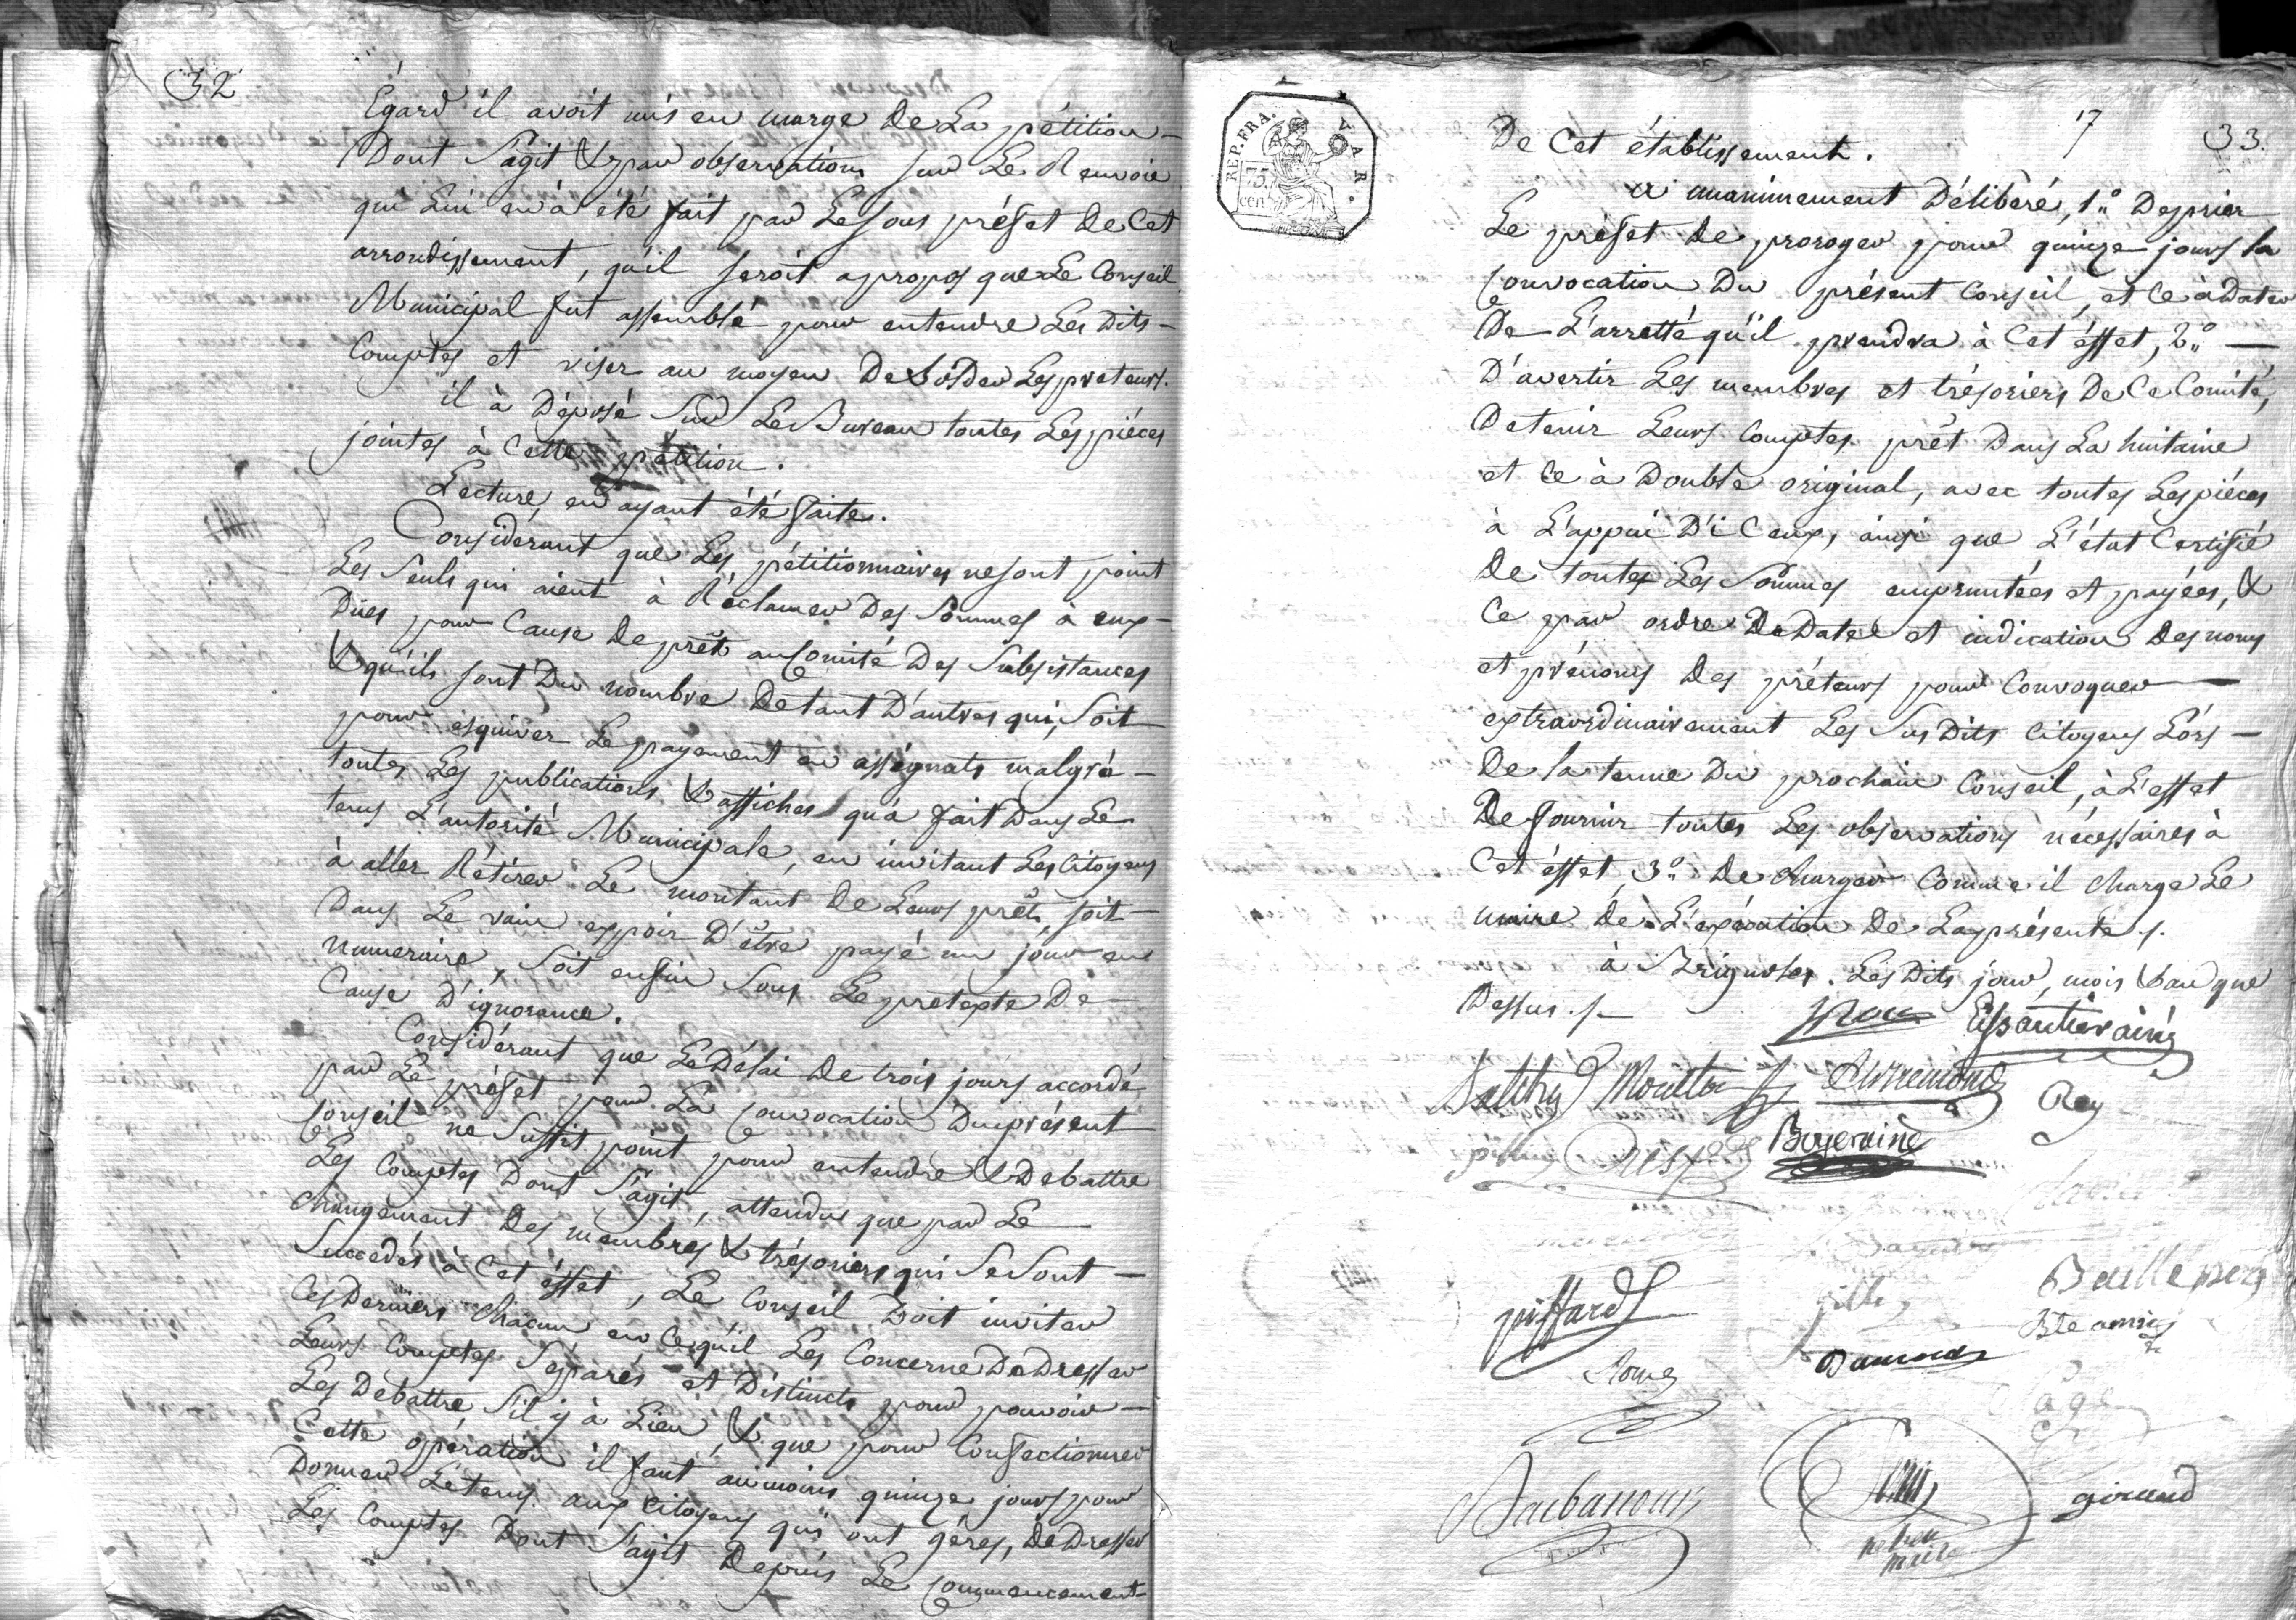 32
Égard il avoit mis en marge de La pétition —
Dont S'agit & par observation sur Le Renvoie
qui Lui en à été fait par Le sous préfet de Cet
arrondissement, qu'il seroit apropos que Le Conseil
Municipal fut assemblé pour entendre Les dits —
Comptes et viser au moyen de solder Les preteurs.
il à Déposé Sur Le Bureau toutes Les piéces
jointes à Cette pétition.
Lecture, en ayant été faite.
Considérant que Les pétitionnaires ne sont point
Les Seuls qui aient à Réclamer Des Sommes à eux —
Dües pour Cause de prêt au Comité Des Subsistances
& qu'ils sont Du nombre de tant D'autres qui, Soit
pour esquiver Le payement en assignats malgré —
toutes Les publications & affiches qu'à fait Dans Le
tems L'autorité Municipale, en invitant Les Citoyens
à aller Rétirer Le montant de Leurs prêt, soit —
Dans Le vain espoir D'être payé un jour en
numeraire, Soit enfin Sous Le pretexte De —
Cause D'ignorance.
Considérant que Le Délai de trois jours accordé
par Le préfet pour La Convocation Du présent
Conseil ne Suffit point pour entendre & Debattre
Les Comptes Dont S'agit, attendu que par Le
changement Des membres & trésoriers qui Se Sont —
Succedés à Cet éffet, Le Conseil Doit inviter
Ces Derniers chacun en Ce qu'il Les Concerne De Dresser
Leurs Comptes Séparés et Distincts pour pouvoir —
Les Debattre S'il y à Lieu, & que pour Confectionner
Cette opération il faut aumoins quinze jours pour
Donner Le tems aux Citoyens qui ont gérés, de Dresser
Les Comptes Dont S'agit Depuis Le Commencement
REP. FRA.
VAR.
75
cen.
17
33.
De Cet établissement.
a unanimement Délibéré, 1.° De prier
Le préfet de proroger pour quinze jours la
Convocation Du présent Conseil, et Ce à Dater
De L'arretté qu'il prendra à Cet éffet, 2.° —
D'avertir Les membres et trésoriers De Ce Comité,
De tenir Leurs Comptes prêt Dans La huitaine
et Ce à Double original, avec toutes Les piéces
à L'appui D'i Ceux, ainsi que L'état Certifié
De toutes Les Sommes empruntées et payées, &
Ce par ordre De Date et indication Des noms
et prénoms Des préteurs pour Convoquer —
extraordinairement Les Sus Dits Citoyens Lors —
De la tenue Du prochain Conseil, à L'effet
De fournir toutes Les observations nécessaires à
Cet éffet, 3.° De charger Comme il charge Le
maire de L'exécution De La présente ./.
à Brignoles. Les Dits jour, mois & an que
Dessus ./.
Rey
Boyer ainé
Giffard
Baille
Bte amic
Barbaroux
giraud
maire